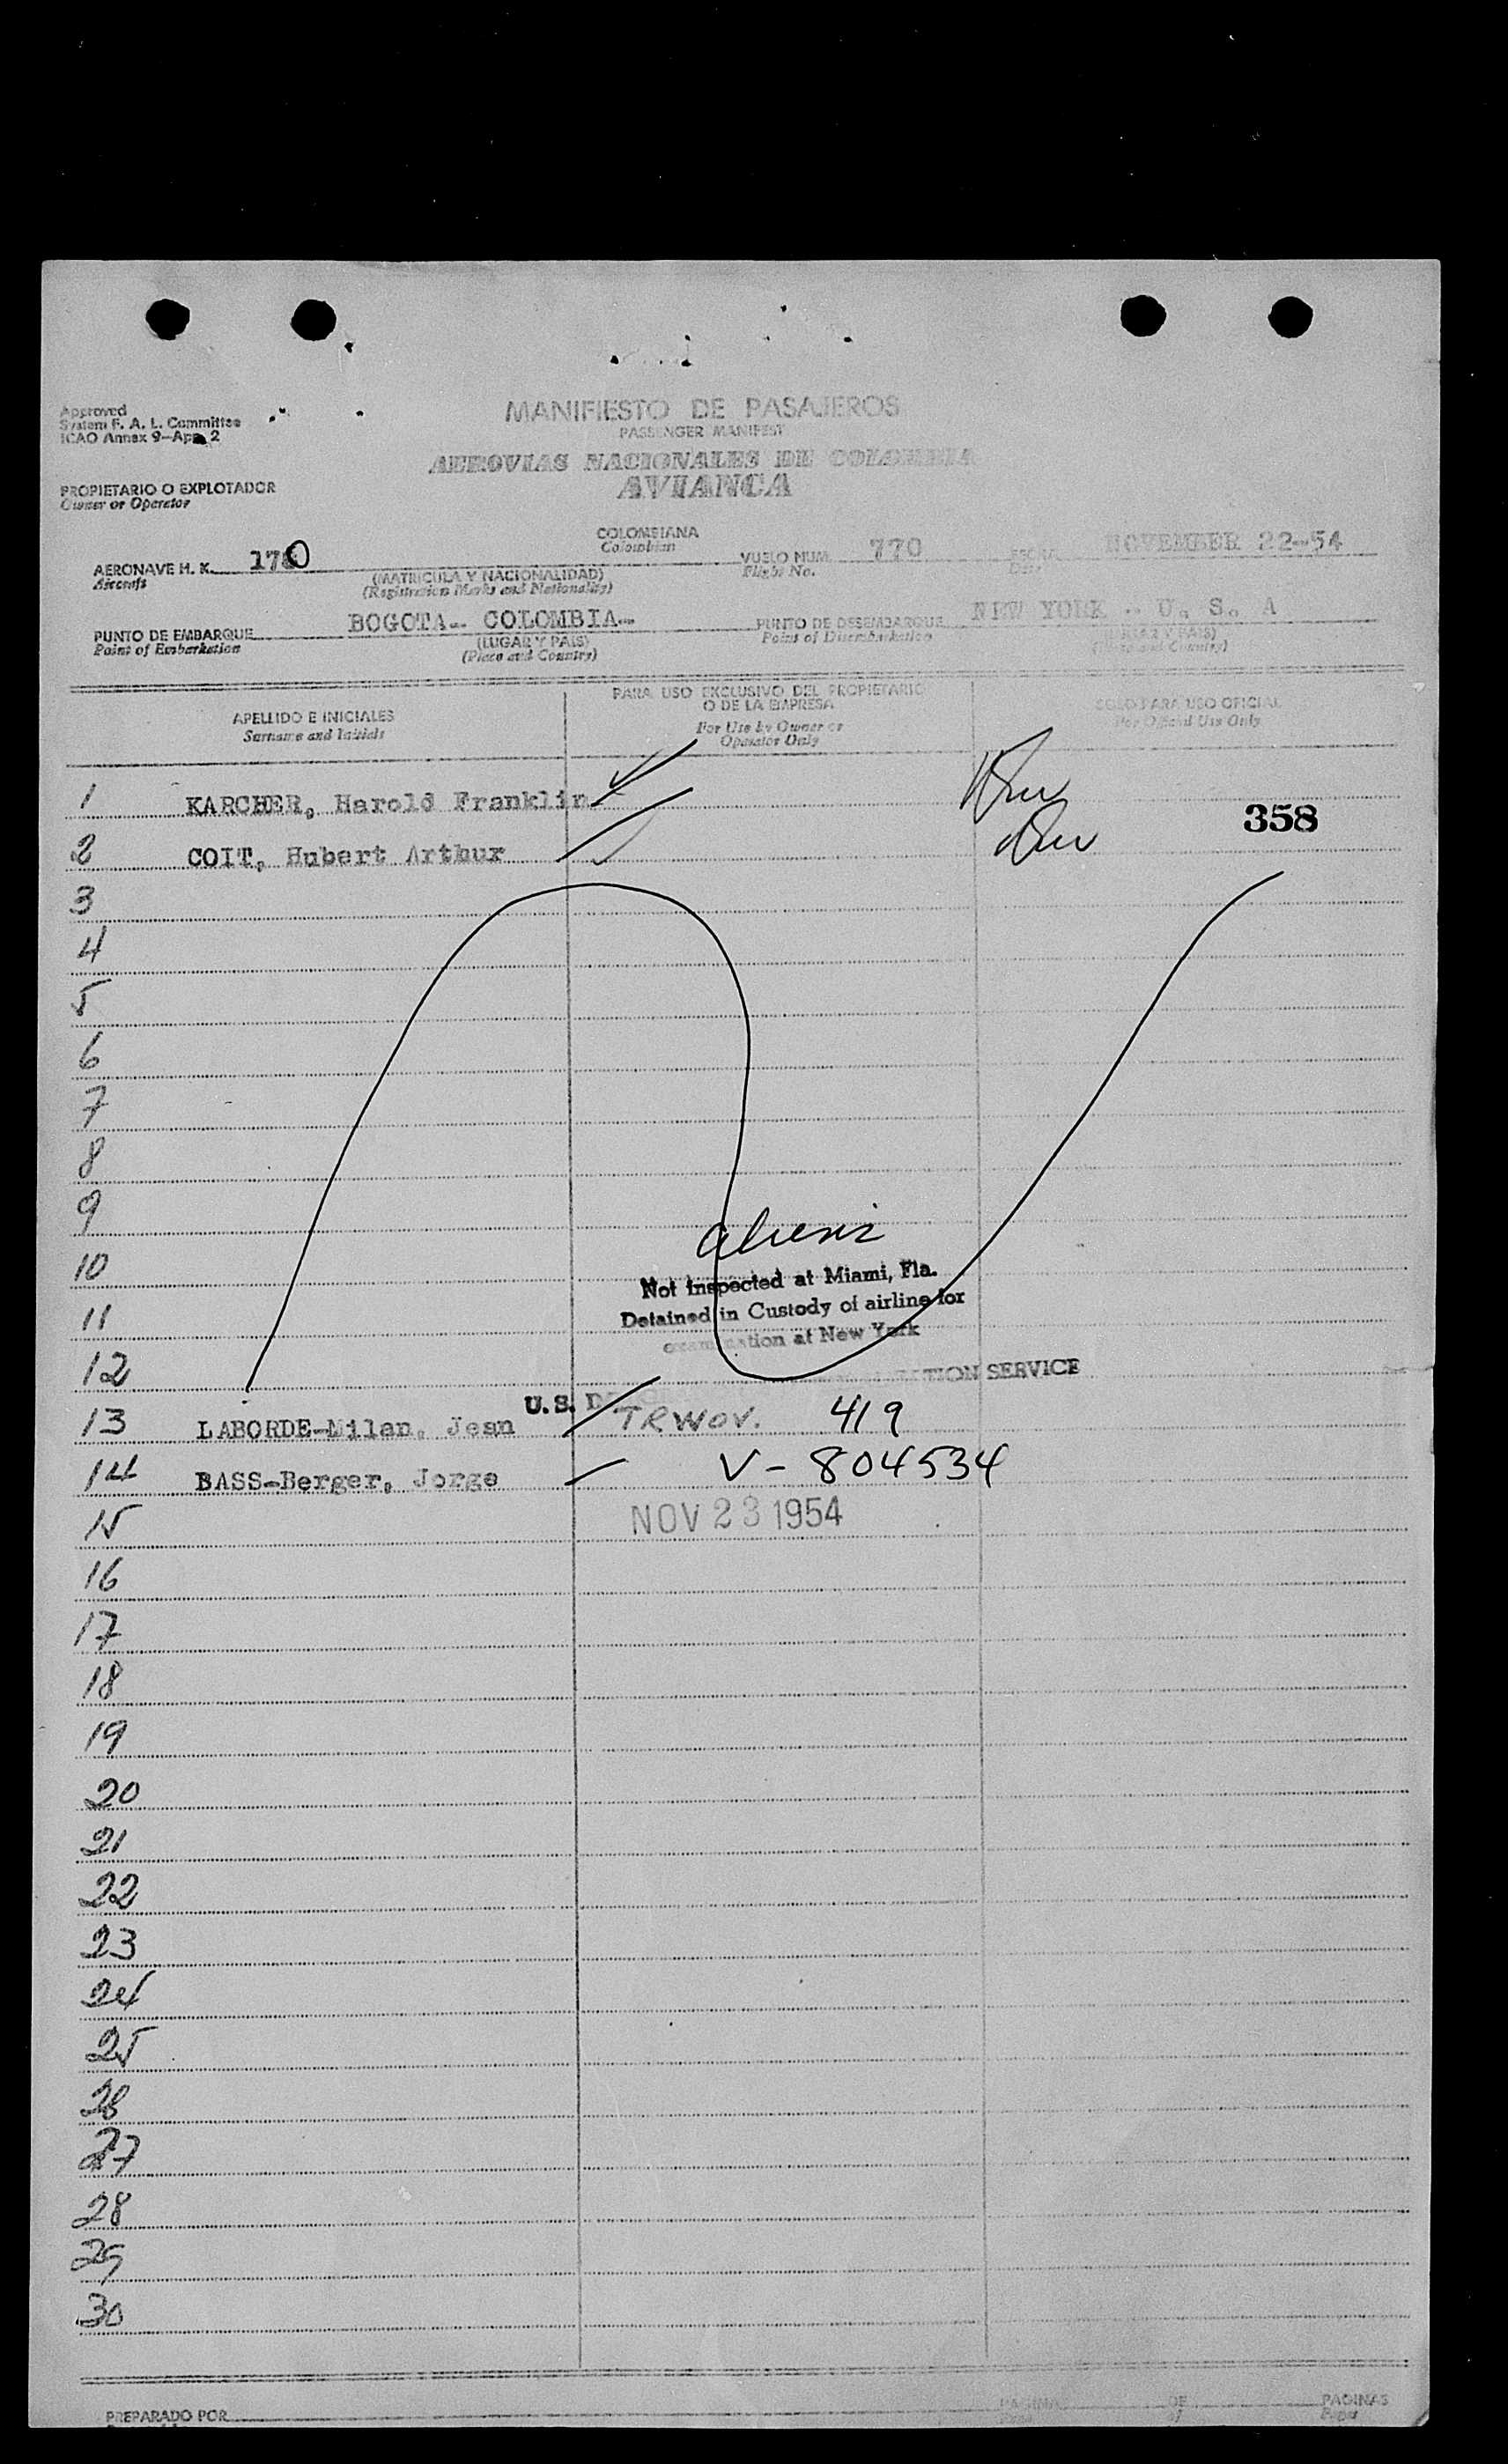 Approved
System F. A. L. Committee
ICAO Annex 9-App. 2
MANIFIESTO DE PASAJEROS
PASSENGER MANIFEST
AEROVIAS NACIONALES DE COLOMBIA
AVIANCA
PROPIETARIO O EXPLOTADOR
Owner or Operator
COLOMBIANA
Colombian
AERONAVE H. K. 170
Aircraft
(MATRICULA Y NACIONALIDAD)
(Registration Marks and Nationality)
VUELO NUM. 770
Flight No.
FECHA NOVEMBER 22-54
Date
PUNTO DE EMBARQUE BOGOTA-- COLOMBIA--
Point of Embarkation
(LUGAR Y PAIS)
(Place and Country)
PUNTO DE DESEMBARQUE NEW YORK -- U. S. A
Point of Disembarkation
(LUGAR Y PAIS)
(Place and Country)
APELLIDO E INICIALES
Surname and Initials
PARA USO EXCLUSIVO DEL PROPIETARIO
O DE LA EMPRESA
For Use by Owner or
Operator Only
SOLO PARA USO OFICIAL
For Official Use Only
1 KARCHER, Harold Franklin
358
2 COIT, Hubert Arthur
3
4
5
6
7
8
9
aliens
10
Not Inspected at Miami, Fla.
11
Detained in Custody of airline for
examination at New York
12
SERVICE
U. S.
13 LABORDE-Milan, Jean TRWOV. 419
14 BASS-Berger, Jorge V-804534
15
NOV 23 1954
16
17
18
19
20
21
22
23
24
25
26
27
28
29
30
PREPARADO POR
PAGINA DE PAGINAS
of Pages